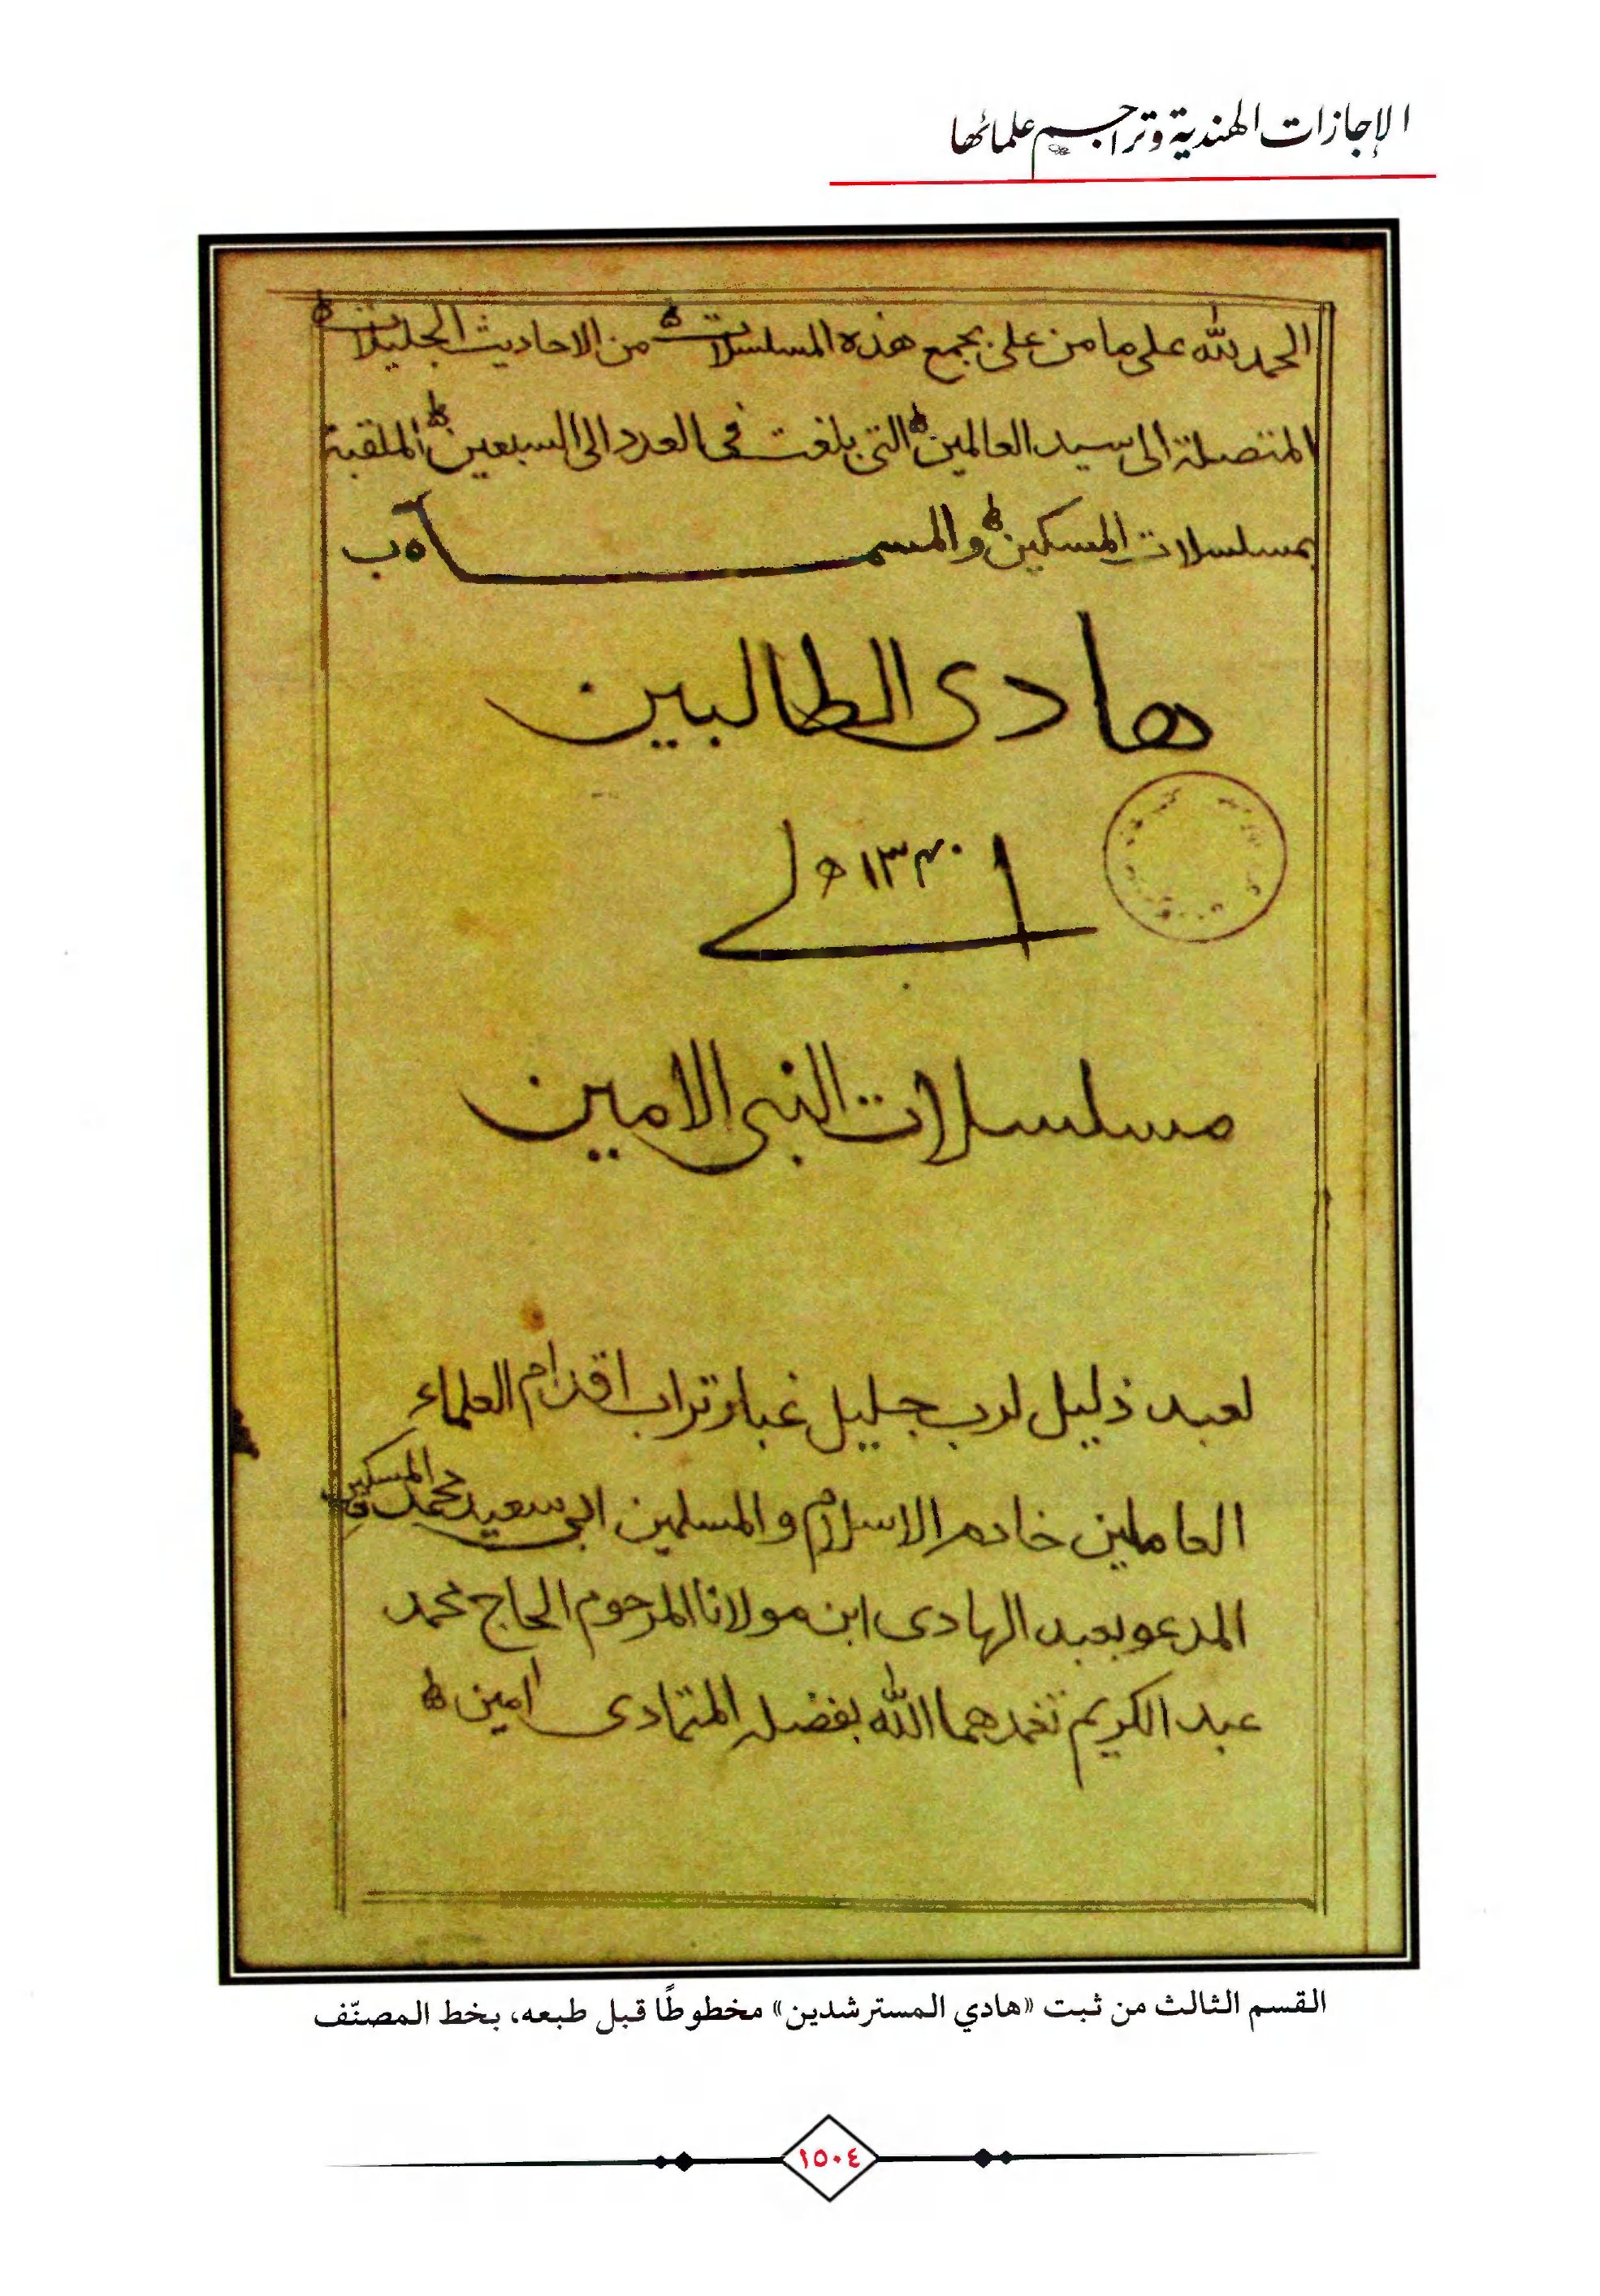 الإجازات الهندية وتراجم علمائها
الحمد لله على ما من على بجمع هذه المسلسلات من الاحاديث الجليلات
المتصلة الى سيد العالمين التى بلغت فى العدد الى السبعين الملقبة
بمسلسلات المسكين والمسماه ب
هادى الطالبين
١٣٤٠ ھ
الى
مسلسلات النبى الامين
لعبد ذليل لرب جليل غبار تراب اقدام العلماء
العاملين خادم الاسلام والمسلمين ابى سعيد محمد المسكين
المدعو بعبد الهادى ابن مولانا المرحوم الحاج محمد
عبد الكريم تغمدهما الله بفضله المتمادى امين
القسم الثالث من ثبت «هادي المسترشدين» مخطوطًا قبل طبعه، بخط المصنّف
١٥٠٤